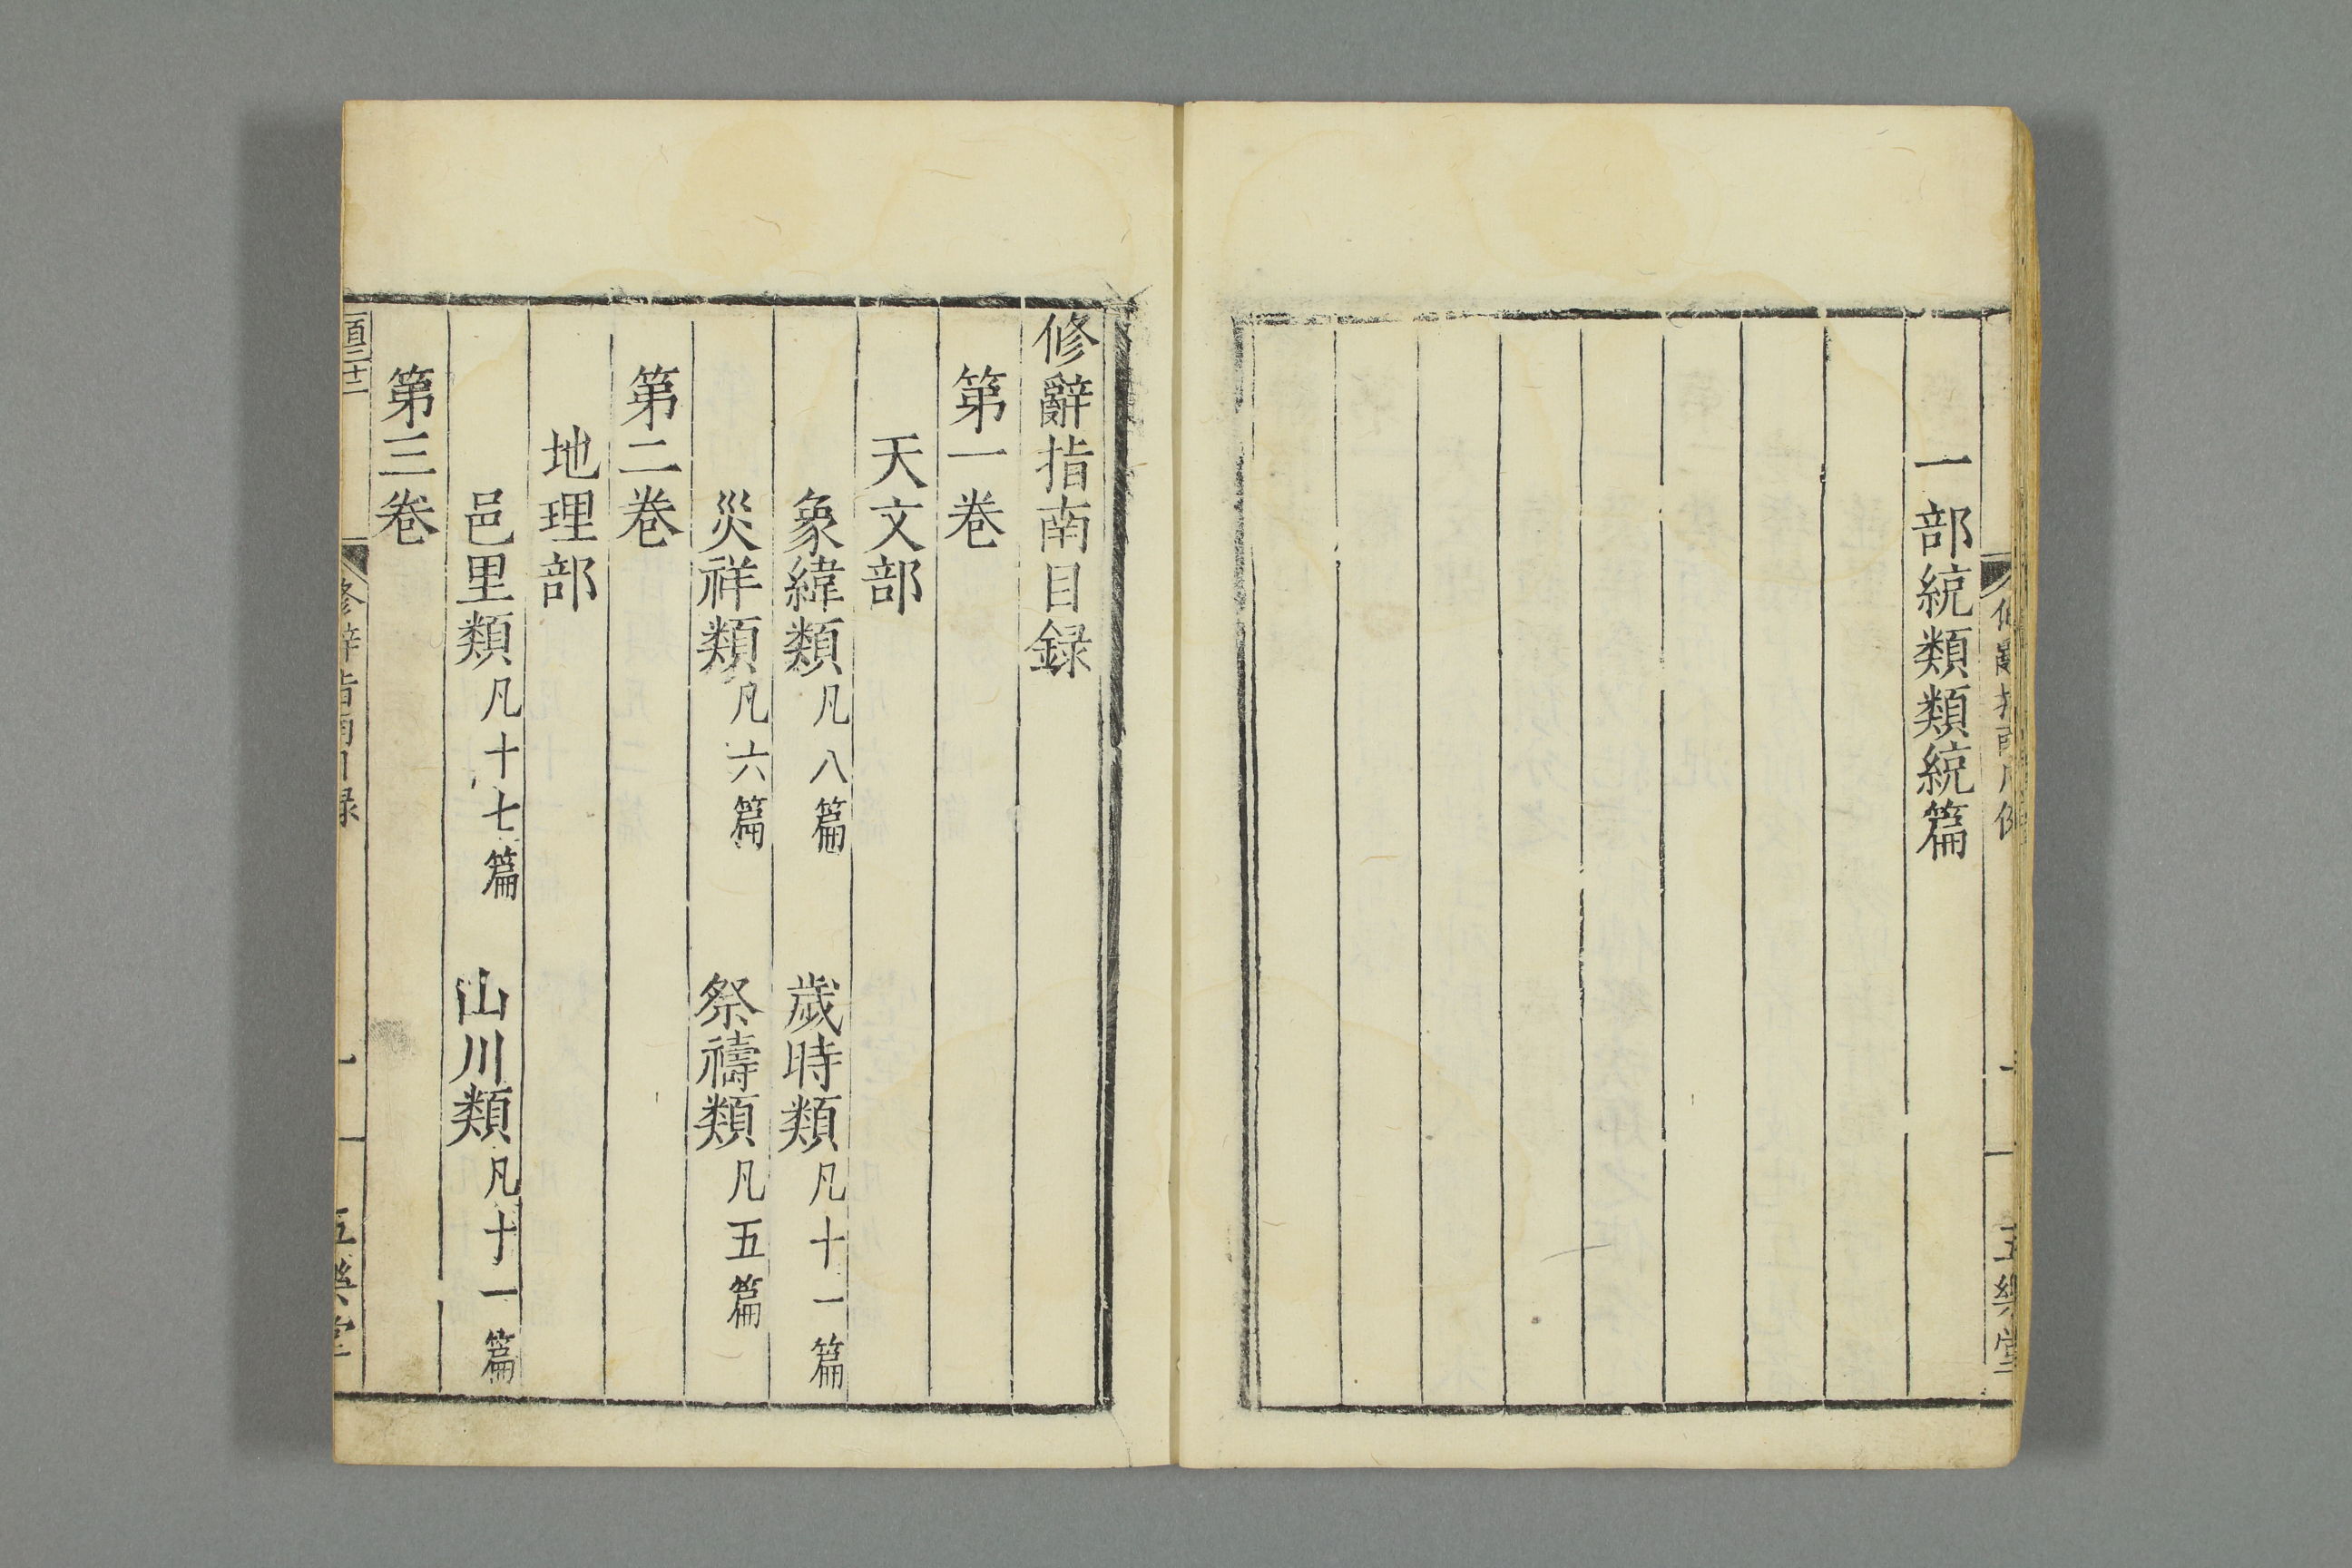 一部統類類統篇
五樂堂
修辭指南目録
第一卷
天文部
象緯類凡八篇　歲時類凡十一篇
災祥類凡六篇　祭禱類凡五篇
第二卷
地理部
邑里類凡十七篇　山川類凡十一篇
第三卷
修辭指南目録　一　五樂堂